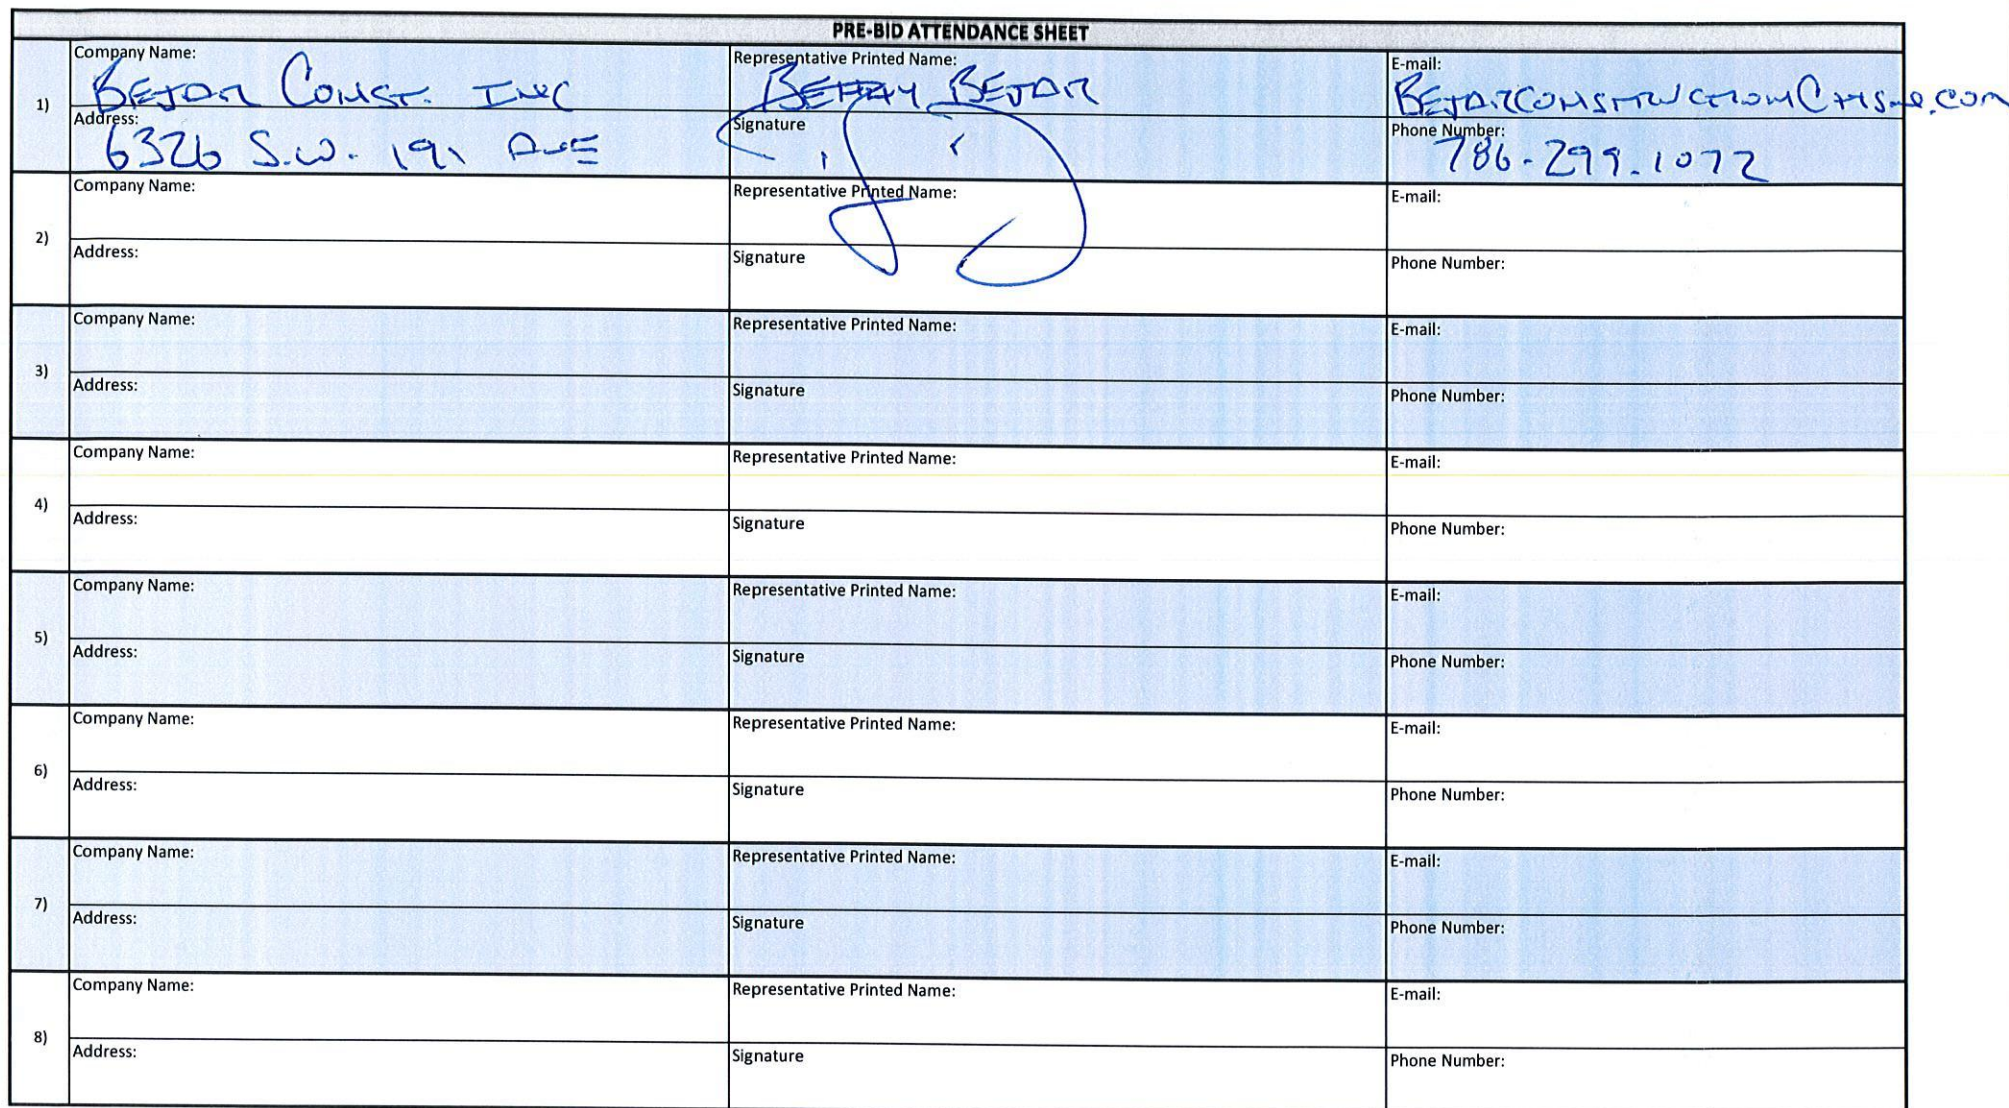 PRE-BID ATTENDANCE SHEET
Company Name: Representative Printed Name: E-mail:
BEJAR CONST. INC BEJAR
1)
Address: Signature Phone Number:
6326 S.W. 191 AVE 786-299.1072
Company Name: Representative Printed Name: E-mail:
2)
Address: Signature Phone Number:
Company Name: Representative Printed Name: E-mail:
3)
Address: Signature Phone Number:
Company Name: Representative Printed Name: E-mail:
4)
Address: Signature Phone Number:
Company Name: Representative Printed Name: E-mail:
5)
Address: Signature Phone Number:
Company Name: Representative Printed Name: E-mail:
6)
Address: Signature Phone Number:
Company Name: Representative Printed Name: E-mail:
7)
Address: Signature Phone Number:
Company Name: Representative Printed Name: E-mail:
8)
Address: Signature Phone Number: